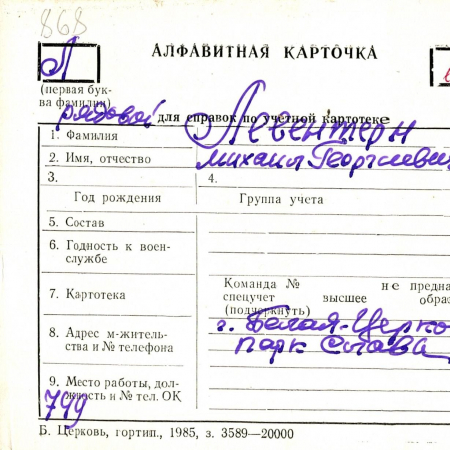 868
АЛФАВИТНАЯ КАРТОЧКА
Л
(первая бук-
ва фамилии)
рядовой для справок по учетной картотеке
1. Фамилия Левентерн
2. Имя, отчество Михаил Георгиевич
3. 4.
Год рождения Группа учета
5. Состав
6. Годность к воен-
службе
7. Картотека
Команда № не предна
спецучет высшее образ
(подчеркнуть)
8. Адрес м-житель-
ства и № телефона
г. Белая-Церко
парк
9. Место работы, дол-
жность и № тел. ОК
749
Б. Церковь, гортип., 1985, з. 3589—20000